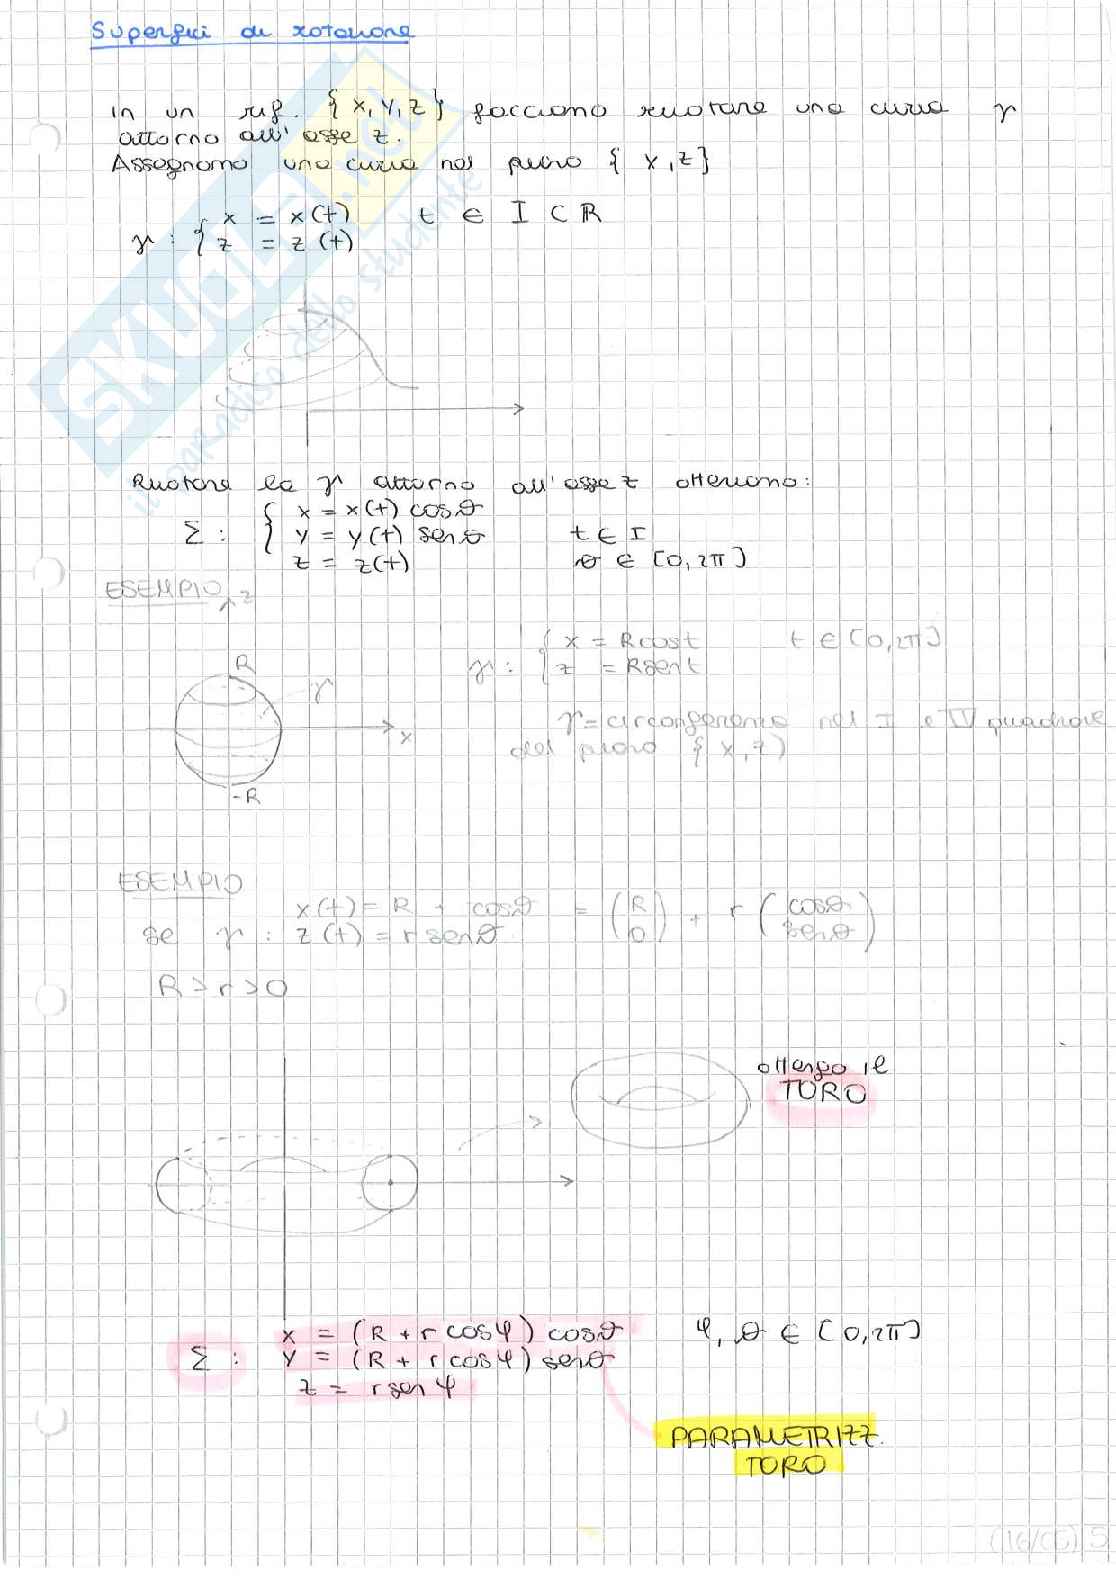 Superfici di rotazione
In un rif. { x, y, z } facciamo ruotare una curva γ
attorno all' asse z.
Assegnamo una curva nel piano { x, z }
γ : { x = x(t) t ∈ I ⊂ ℝ
z = z(t)
Ruotare la γ attorno all' asse z otteniamo:
Σ : { x = x(t) cosϑ
y = y(t) senϑ t ∈ I
z = z(t) ϑ ∈ [0, 2π]
ESEMPIO
z
R
γ
x
-R
γ : { x = R cost t ∈ [0, 2π]
z = R sent
γ = circonferenza nel I e IV quadrante
del piano { x, z }
ESEMPIO
se γ : x(t) = R + cosϑ = (R 0) + r (cosϑ senϑ)
z(t) = r senϑ
R > r > 0
ottengo il
TORO
Σ : x = (R + r cosφ) cosϑ φ, ϑ ∈ [0, 2π]
y = (R + r cosφ) senϑ
z = r sen φ
PARAMETRIZZ.
TORO
SKUOLA.net
il paradiso dello studente
5